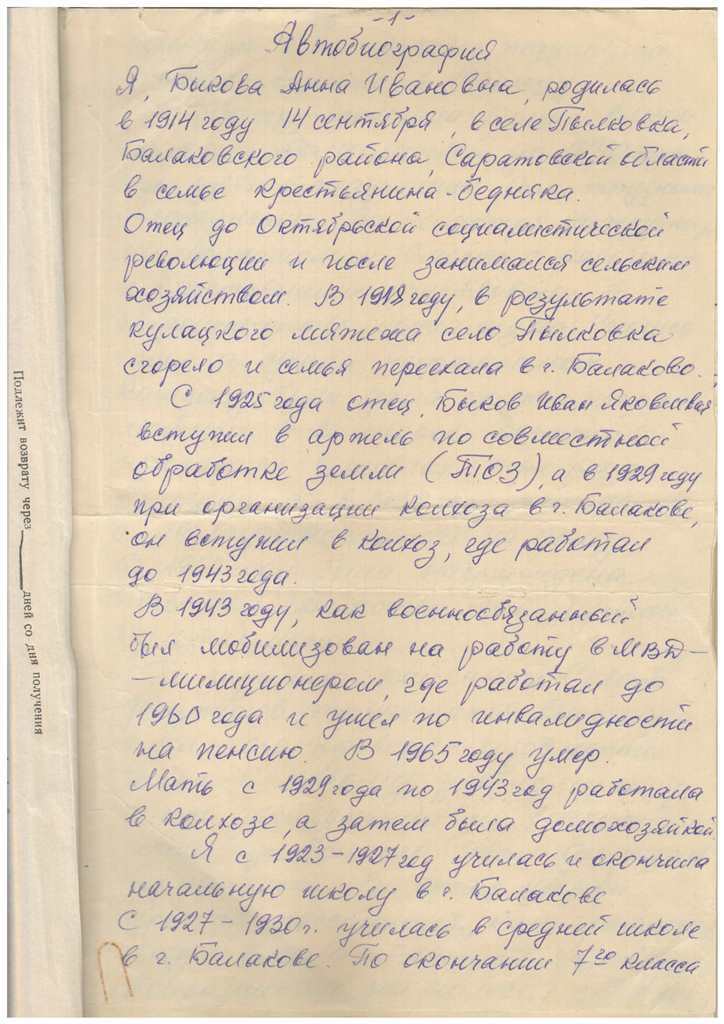 -1-
Автобиография
Я, Быкова Анна Ивановна, родилась
в 1914 году 14 сентября, в селе Пылковка,
Балаковского района, Саратовской области
в семье крестьянина-бедняка.
Отец до Октябрьской социалистической
революции и после занимался сельским
хозяйством. В 1918 году, в результате
кулацкого мятежа село Пылковка
сгорело и семья переехала в г. Балаково.
С 1925 года отец, Быков Иван Яковлевич
вступил в артель по совместной
обработке земли (ТОЗ), а в 1929 году
при организации колхоза в г. Балакове,
он вступил в колхоз, где работал
до 1943 года.
В 1943 году, как военнообязанный
был мобилизован на работу в МВД-
-милиционером, где работал до
1960 года и ушел по инвалидности
на пенсию. В 1965 году умер.
Мать с 1929 года по 1943 год работала
в колхозе, а затем была домохозяйкой
Я с 1923-1927 год училась и окончила
начальную школу в г. Балакове
С 1927-1930 г. училась в средней школе
в г. Балакове. По окончании 7го класса
Подлежит возврату через ____ дней со дня получения